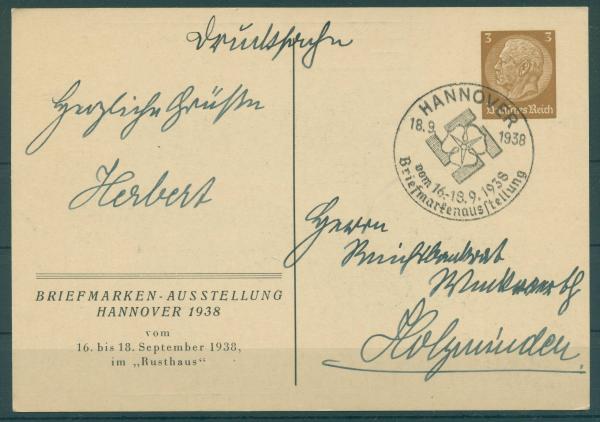 Drucksache
Herzliche Grüße
Herbert
BRIEFMARKEN-AUSSTELLUNG
HANNOVER 1938
vom
16. bis 18. September 1938,
im „Rusthaus"
3 3
Deutsches Reich
HANNOVER
18.9. 1938
vom 16.-18.9.1938
Briefmarkenausstellung
Herrn
Reichsbankrat
Holzminden.